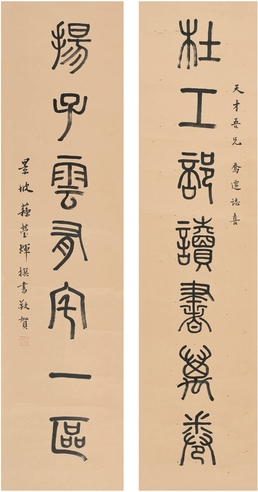 杜工部讀書萬卷
天才吾兄 喬遷誌喜
揚子雲有宅一區
景坡蘇瑩輝撰書敬賀